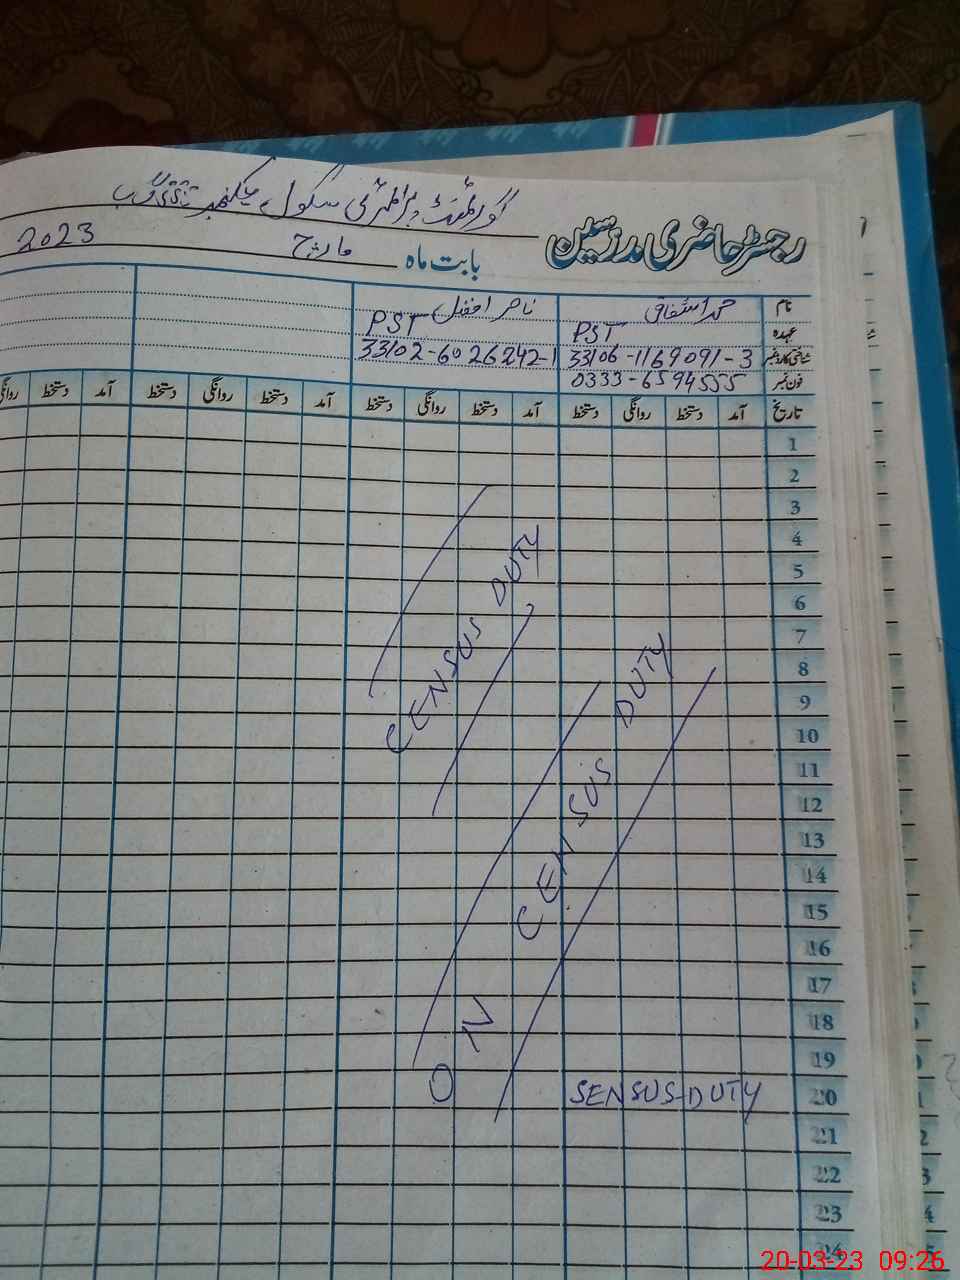 گورنمنٹ پرائمری سکول چک نمبر
رجسٹر حاضری مدرسین
بابت ماہ مارچ 2023
نام محمد اشفاق ناصر افضل
عہدہ PST PST
شناختی کارڈ نمبر 33106-1169091-3 33102-6026242-1
فون نمبر 0333-6594555
تاریخ آمد دستخط روانگی دستخط آمد دستخط روانگی دستخط آمد دستخط روانگی دستخط آمد دستخط روانگی
1
2
3
4
5
6
7
8
9
10
11
12
13
14
15
16
17
18
19
20 SENSUS-DUTY
21
22
23
24
CENSUS DUTY
ON CENSUS DUTY
20-03-23 09:26